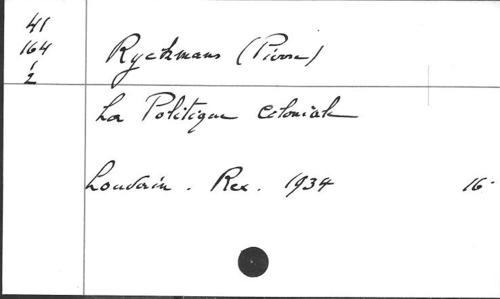 41
164
1
2
Ryckmans (Pierre)
La Politique coloniale
Louvain. Rex. 1934 16°